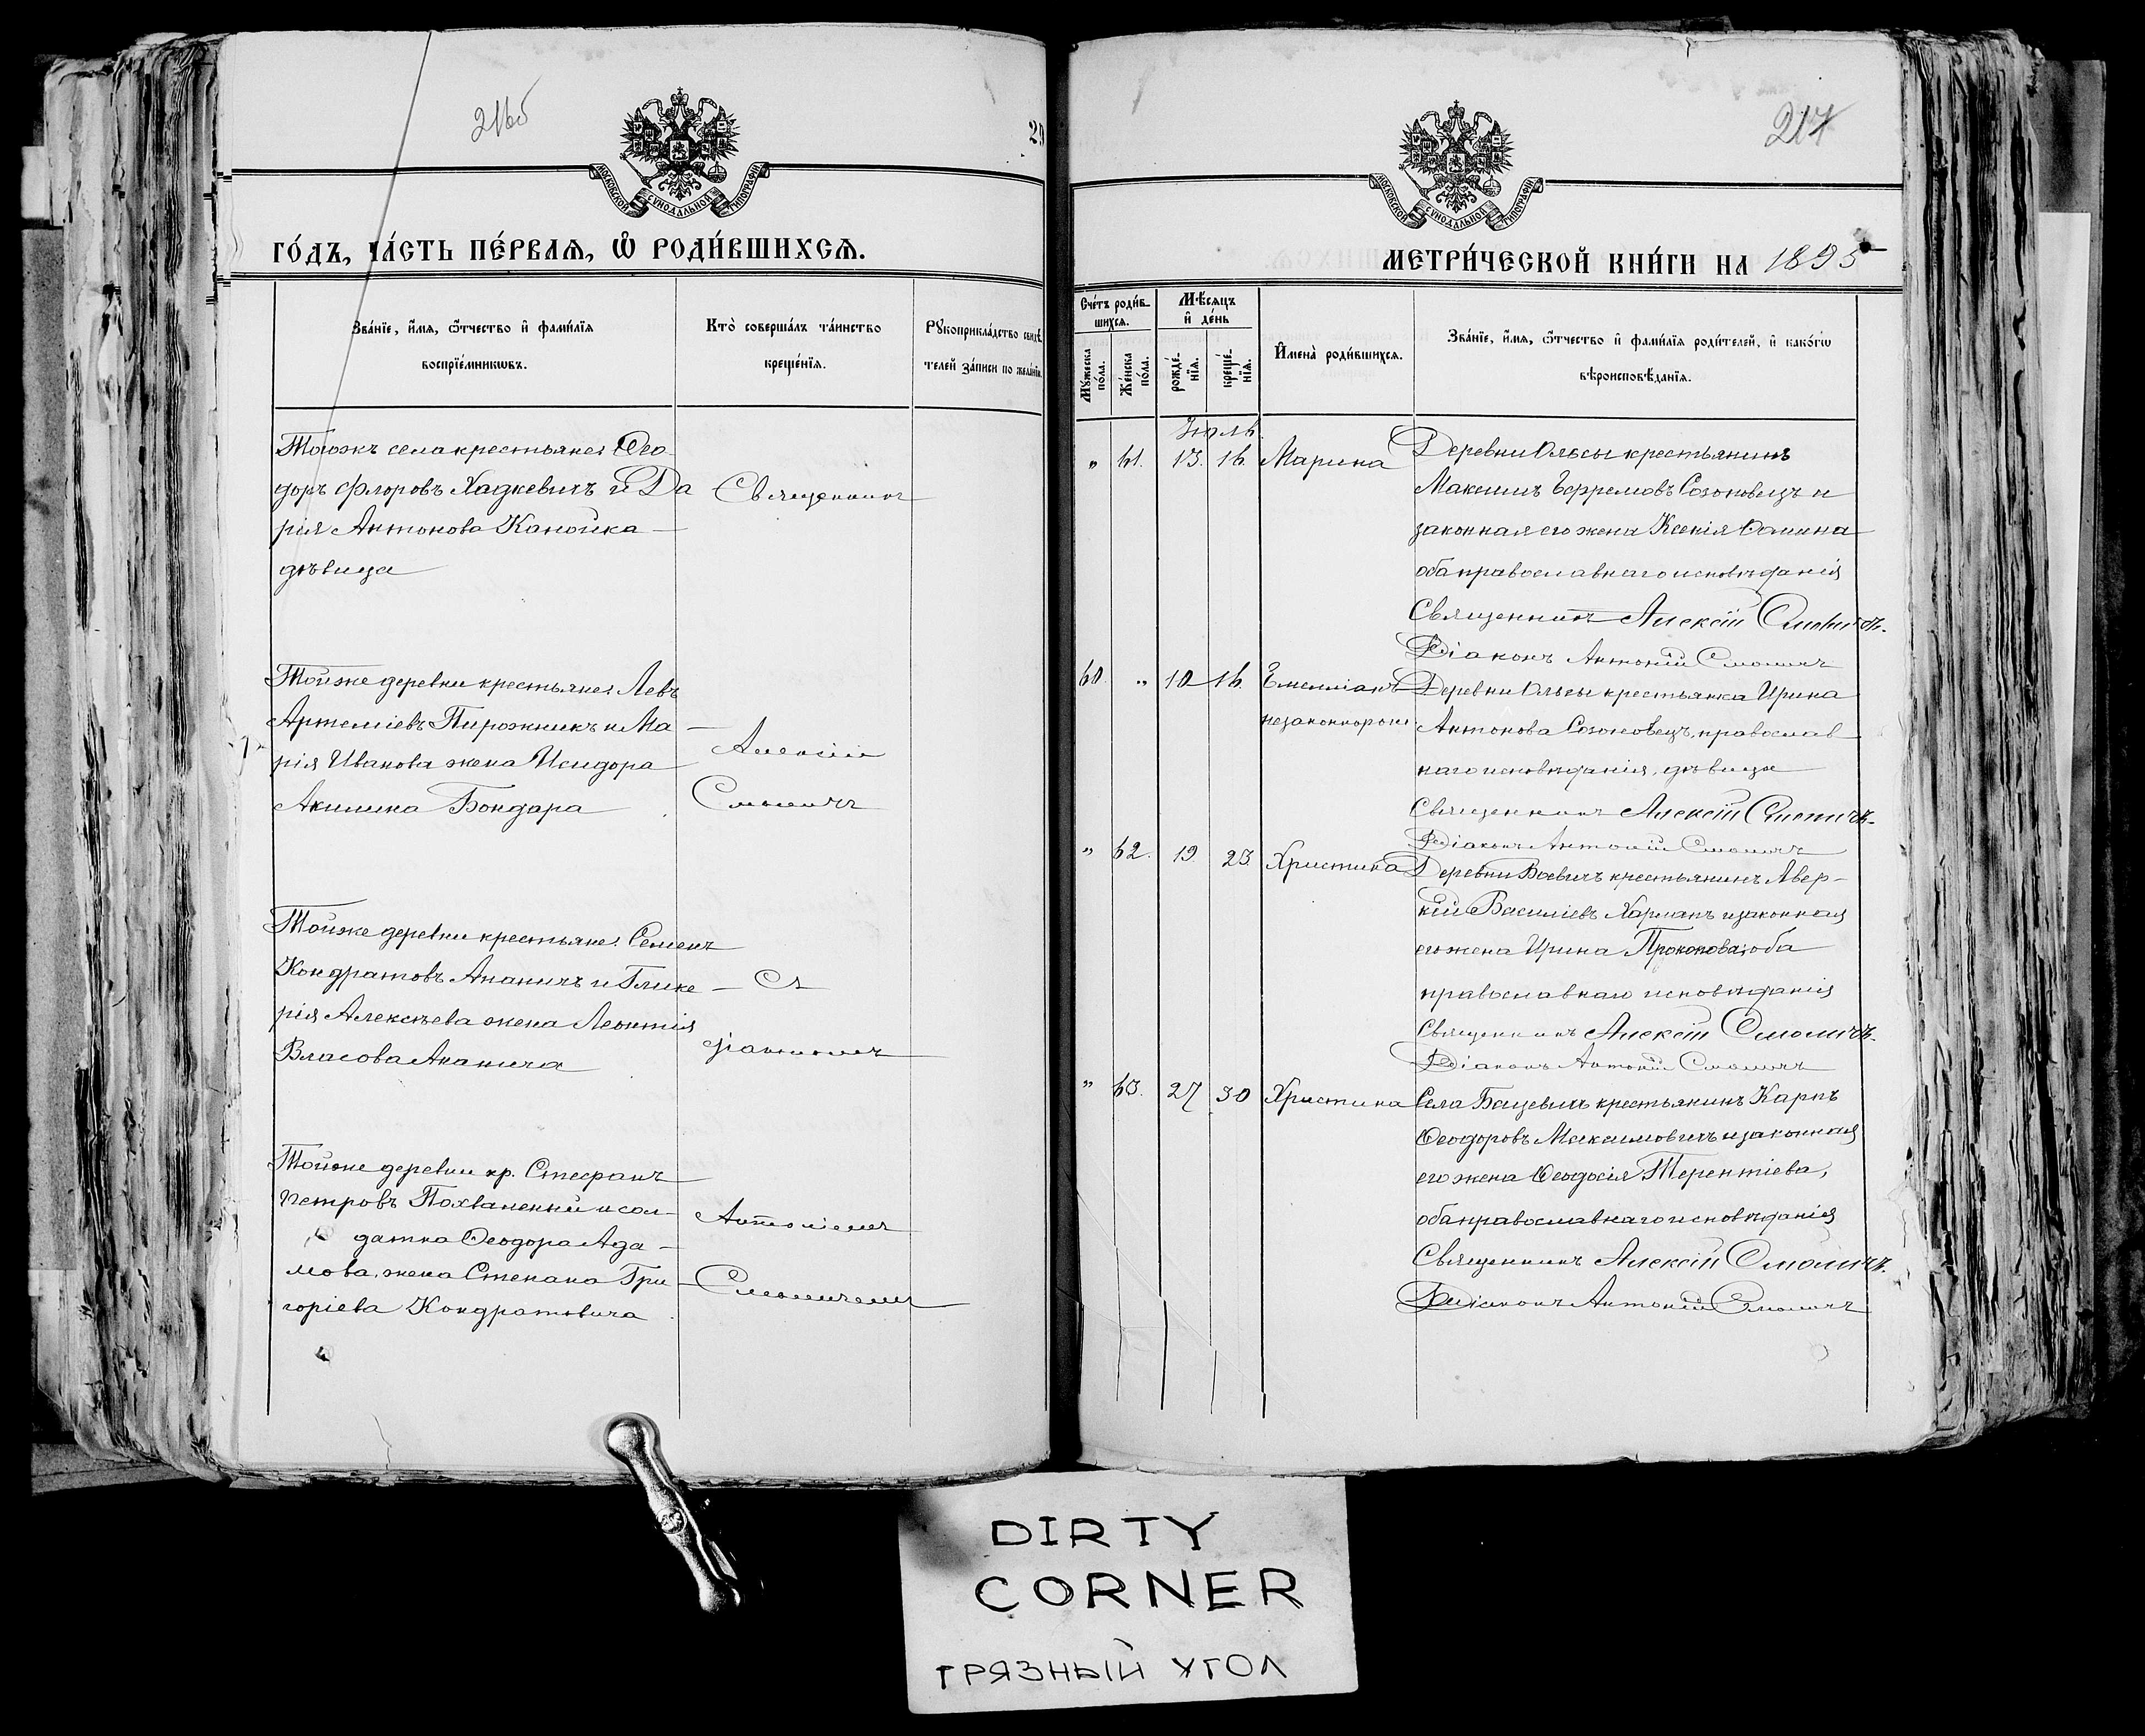 216б
МОСКОВСКОЙ СѴНОДАЛЬНОЙ ТИПОГРАФІИ
ГО́ДЪ, ЧА́СТЬ ПЕ́РВАѦ, Ѽ РОДИ́ВШИХСѦ.
Зва́нїе, и҆́мѧ, ѻ҆́тчество и҆ фами́лїѧ
воспрїе́мникѡвъ.
Кто̀ соверша́лъ та́инство
креще́нїѧ.
Рꙋкоприкла́дство свидѣ́
телей за́писи по жела́нїю
Тогожъ села крестьяне: Ѳео
доръ Флоровъ Хадкевичъ и Да
рія Антонова Канойка
дѣвица
Священникъ
Тойже деревни крестьяне: Левъ
Артеміевъ Пирожникъ и Ма
рія Иванова жена Исидора
Акилина Бондара
Алексій
Смоличъ
Тойже деревни крестьяне: Семенъ
Кондратовъ Ананичъ и Глике
рія Алексѣева жена Леонтія
Власова Ананича
Съ
діакономъ
Тойже деревни кр. Стефанъ
Петровъ Похваленный и сол
датка Ѳеодора Ада
мова, жена Степана Гри
горіева Кондратовича
Антоніемъ
Смоличемъ
217
МОСКОВСКОЙ СѴНОДАЛЬНОЙ ТИПОГРАФІИ
МЕТРИ́ЧЕСКОЙ КНИ́ГИ НА 1895
Сче́тъ роди́в-
шихсѧ.
Мꙋ́жеска по́ла.
Же́нска по́ла.
Мѣ́сѧцъ
и҆ де́нь
рожде́-нїѧ.
креще́-нїѧ.
И҆мена̀ роди́вшихсѧ.
Зва́нїе, и҆́мѧ, ѻ҆́тчество и҆ фами́лїѧ роди́телей, и҆ како́гѡ
вѣроисповѣ́данїѧ.
Іюль.
" 61. 13. 16. Марина
Деревни Ольсы крестьянинъ
Максимъ Ефремовъ Созоновецъ и
законная его жена Ксенія Ѳомина
оба православнаго исповѣданія
Священникъ Алексій Смоличъ.
Діаконъ Антоній Смоличъ
60. " 10 16. Емеліанъ
незаконнорож.
Деревни Ольсы крестьянка Ирина
Антонова Созоновецъ, православ
наго исповѣданія, дѣвица
Священникъ Алексій Смоличъ.
Діаконъ Антоній Смоличъ
" 62. 19. 23. Христина
Деревни Воевичъ крестьянинъ Авер-
кій Василіевъ Харланъ и законная
его жена Ирина Прокопова; оба
православнаго исповѣданія
Священникъ Алексій Смоличъ.
Діаконъ Антоній Смоличъ
" 63. 27 30 Христина
Села Бацевичъ крестьянинъ Карпъ
Ѳеодоровъ Максимовичъ и законная
его жена Ѳеодосія Терентіева,
оба православнаго исповѣданія
Священникъ Алексій Смоличъ.
Діаконъ Антоній Смоличъ
DIRTY
CORNER
ГРЯЗНЫЙ УГОЛ